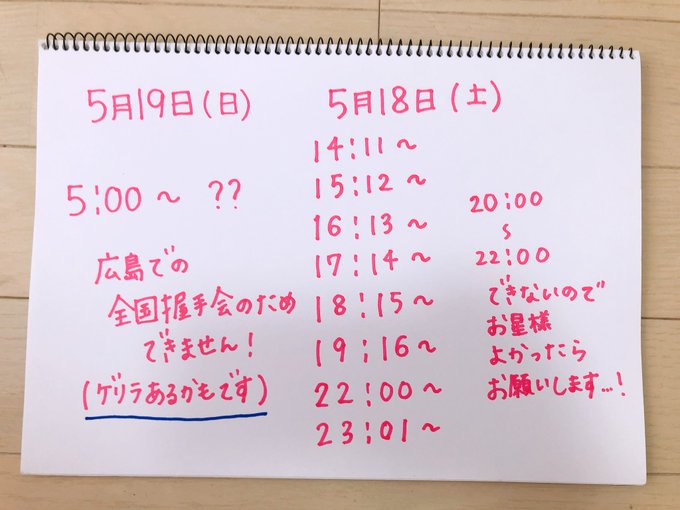 5月19日(日)
5:00~ ??
広島での
全国握手会のため
できません!
(ゲリラあるかもです)
5月18日(土)
14:11~
15:12~
16:13~
17:14~
18:15~
19:16~
22:00~
23:01~
20:00
~
22:00
できないので
お星様
よかったら
お願いします...!